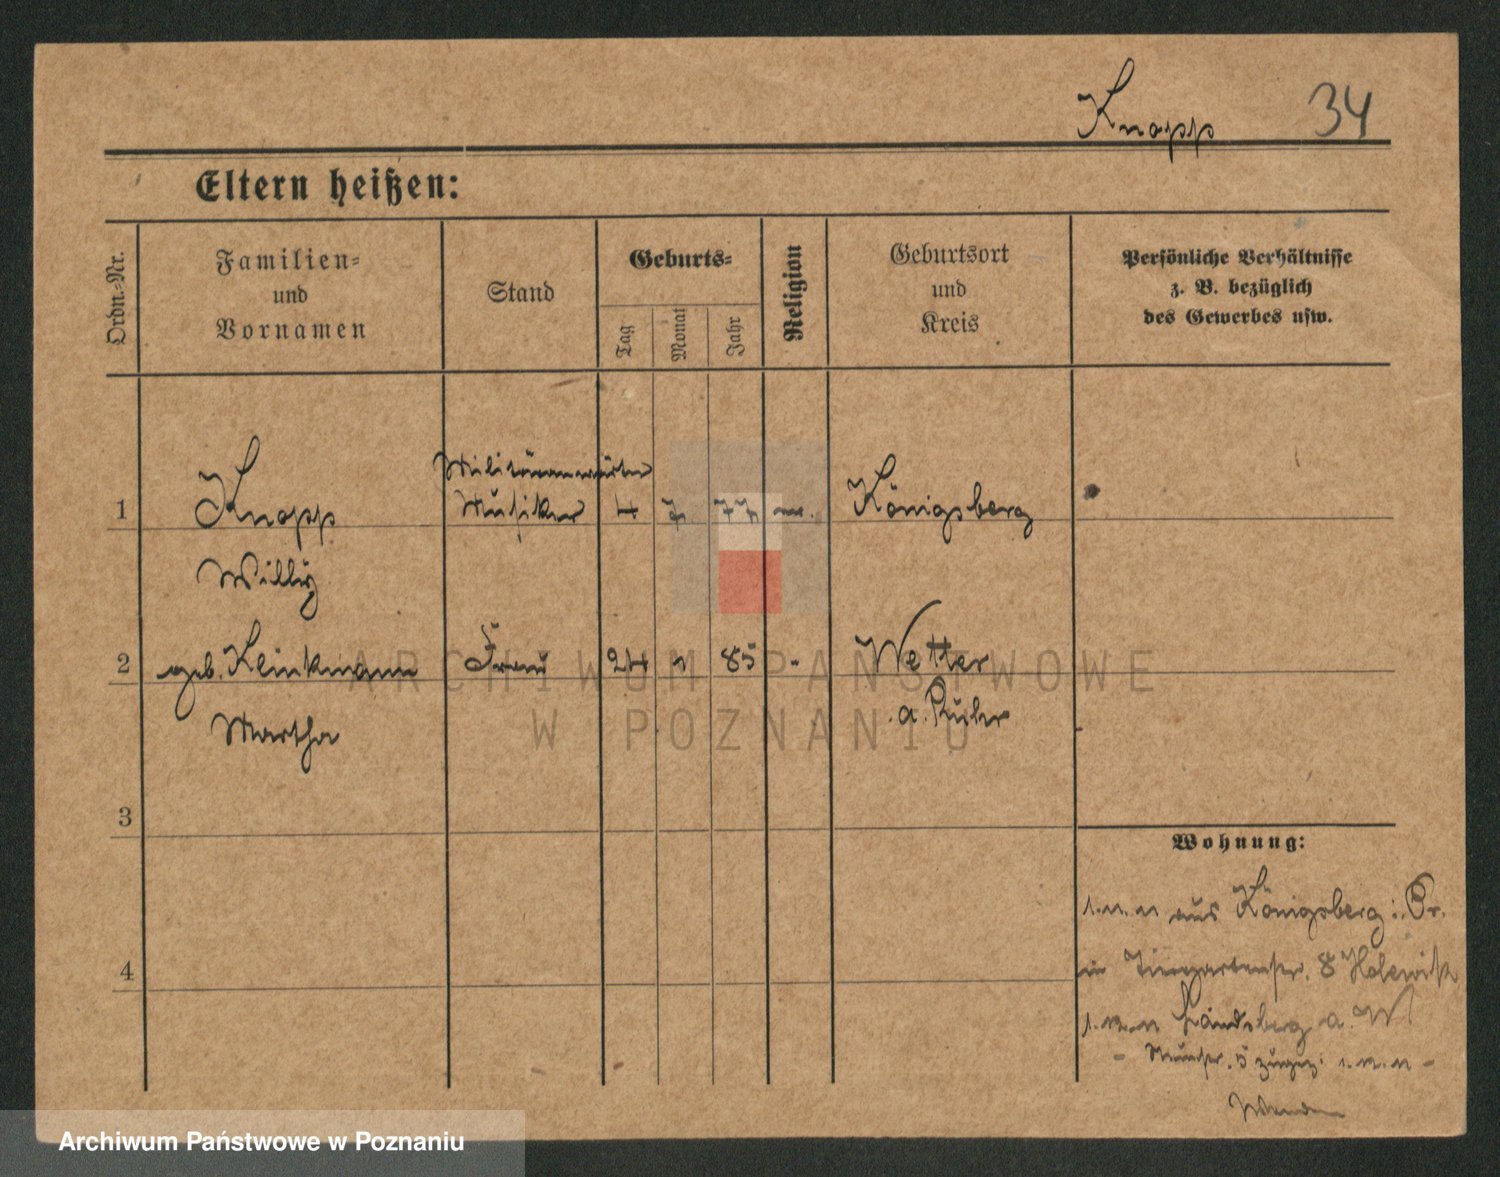 Knopp 34
Eltern heißen:
Ordn.-Nr.
Familien-
und
Vornamen
Stand
Geburts-
Tag
Monat
Jahr
Religion
Geburtsort
und
Kreis
Persönliche Verhältnisse
z. B. bezüglich
des Gewerbes usw.
Militäranwärter
1 Knopp Musiker 4 7 77 Königsberg
Willy
2 geb. Kleinkmann Frau 24 85 Wetter
Martha a. Ruhr
3
Wohnung:
aus Königsberg i. Pr.
in Tiergartenstr. 8
4
Landsberg a. W
5 zugez.
Wenden
ARCHIWUM PAŃSTWOWE
W POZNANIU
Archiwum Państwowe w Poznaniu